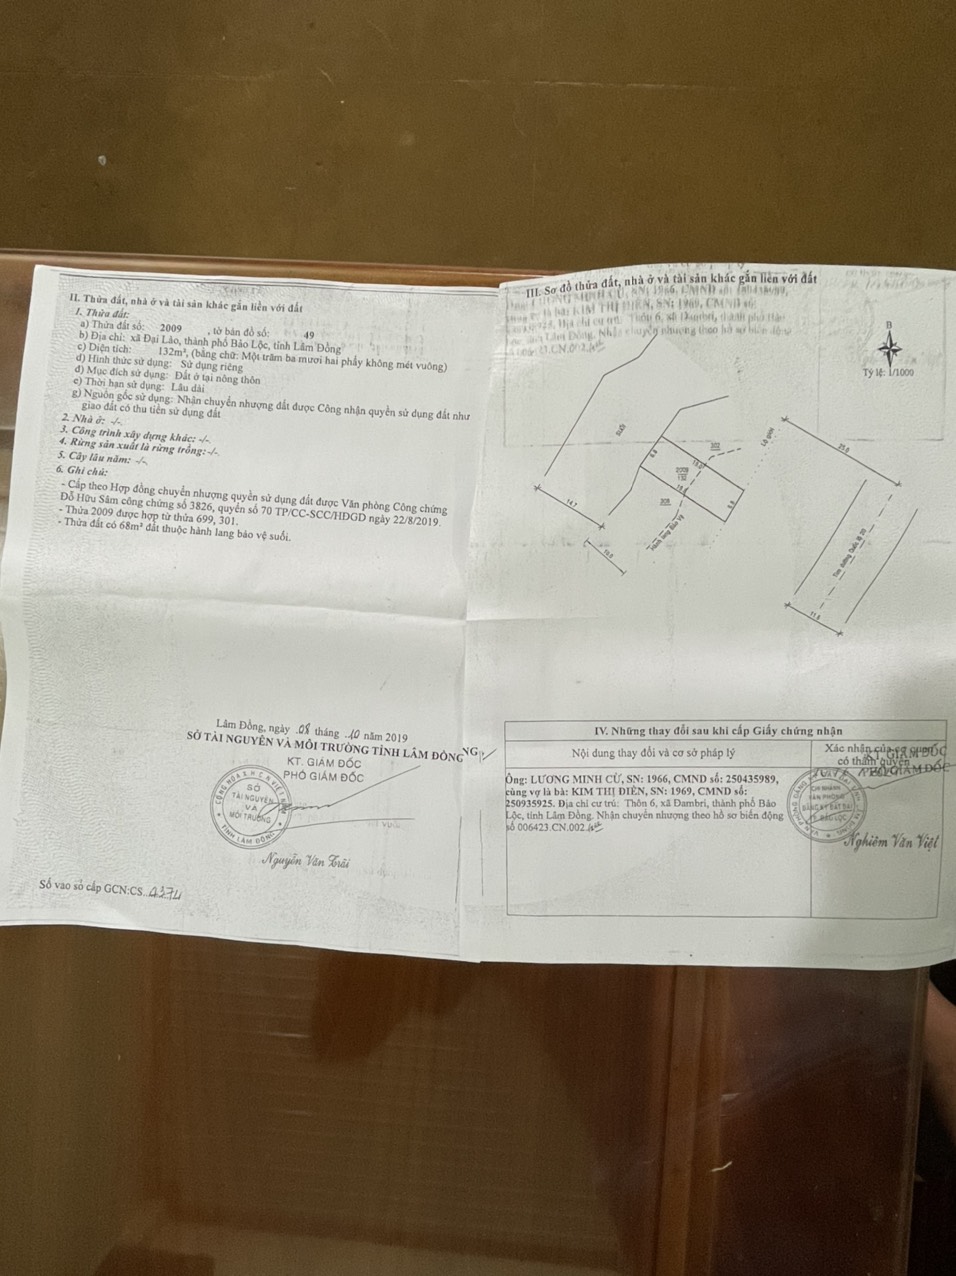 II. Thửa đất, nhà ở và tài sản khác gắn liền với đất
1. Thửa đất:
a) Thửa đất số: 2009 , tờ bản đồ số: 49
b) Địa chỉ: xã Đại Lào, thành phố Bảo Lộc, tỉnh Lâm Đồng
c) Diện tích: 132m², (bằng chữ: Một trăm ba mươi hai phẩy không mét vuông)
d) Hình thức sử dụng: Sử dụng riêng
đ) Mục đích sử dụng: Đất ở tại nông thôn
e) Thời hạn sử dụng: Lâu dài
g) Nguồn gốc sử dụng: Nhận chuyển nhượng đất được Công nhận quyền sử dụng đất như
giao đất có thu tiền sử dụng đất
2. Nhà ở: -/-
3. Công trình xây dựng khác: -/-
4. Rừng sản xuất là rừng trồng: -/-
5. Cây lâu năm: -/-
6. Ghi chú:
- Cấp theo Hợp đồng chuyển nhượng quyền sử dụng đất được Văn phòng Công chứng
Đỗ Hữu Sâm công chứng số 3826, quyển số 70 TP/CC-SCC/HĐGD ngày 22/8/2019.
- Thửa 2009 được hợp từ thửa 699, 301.
- Thửa đất có 68m² đất thuộc hành lang bảo vệ suối.
Lâm Đồng, ngày 08 tháng 10 năm 2019
SỞ TÀI NGUYÊN VÀ MÔI TRƯỜNG TỈNH LÂM ĐỒNG
KT. GIÁM ĐỐC
PHÓ GIÁM ĐỐC
SỞ
TÀI NGUYÊN
VÀ
MÔI TRƯỜNG
TỈNH LÂM ĐỒNG
Nguyễn Văn Trãi
Số vào sổ cấp GCN:CS..
III. Sơ đồ thửa đất, nhà ở và tài sản khác gắn liền với đất
B
Tỷ lệ: 1/1000
SUỐI
302
Lộ giới
25.0
6.8
2009
132
308
6.8
14.7
Hành lang Bảo Vệ
10.0
Tim đường Quốc lộ 20
11.6
IV. Những thay đổi sau khi cấp Giấy chứng nhận
Nội dung thay đổi và cơ sở pháp lý
Xác nhận của cơ quan
có thẩm quyền
KT. GIÁM ĐỐC
PHÓ GIÁM ĐỐC
Ông: LƯƠNG MINH CỪ, SN: 1966, CMND số: 250435989,
cùng vợ là bà: KIM THỊ DIÊN, SN: 1969, CMND số:
250935925. Địa chỉ cư trú: Thôn 6, xã Đambri, thành phố Bảo
Lộc, tỉnh Lâm Đồng. Nhận chuyển nhượng theo hồ sơ biến động
số 006423.CN.002
CHI NHÁNH
VĂN PHÒNG
ĐĂNG KÝ ĐẤT ĐAI
Nghiêm Văn Việt